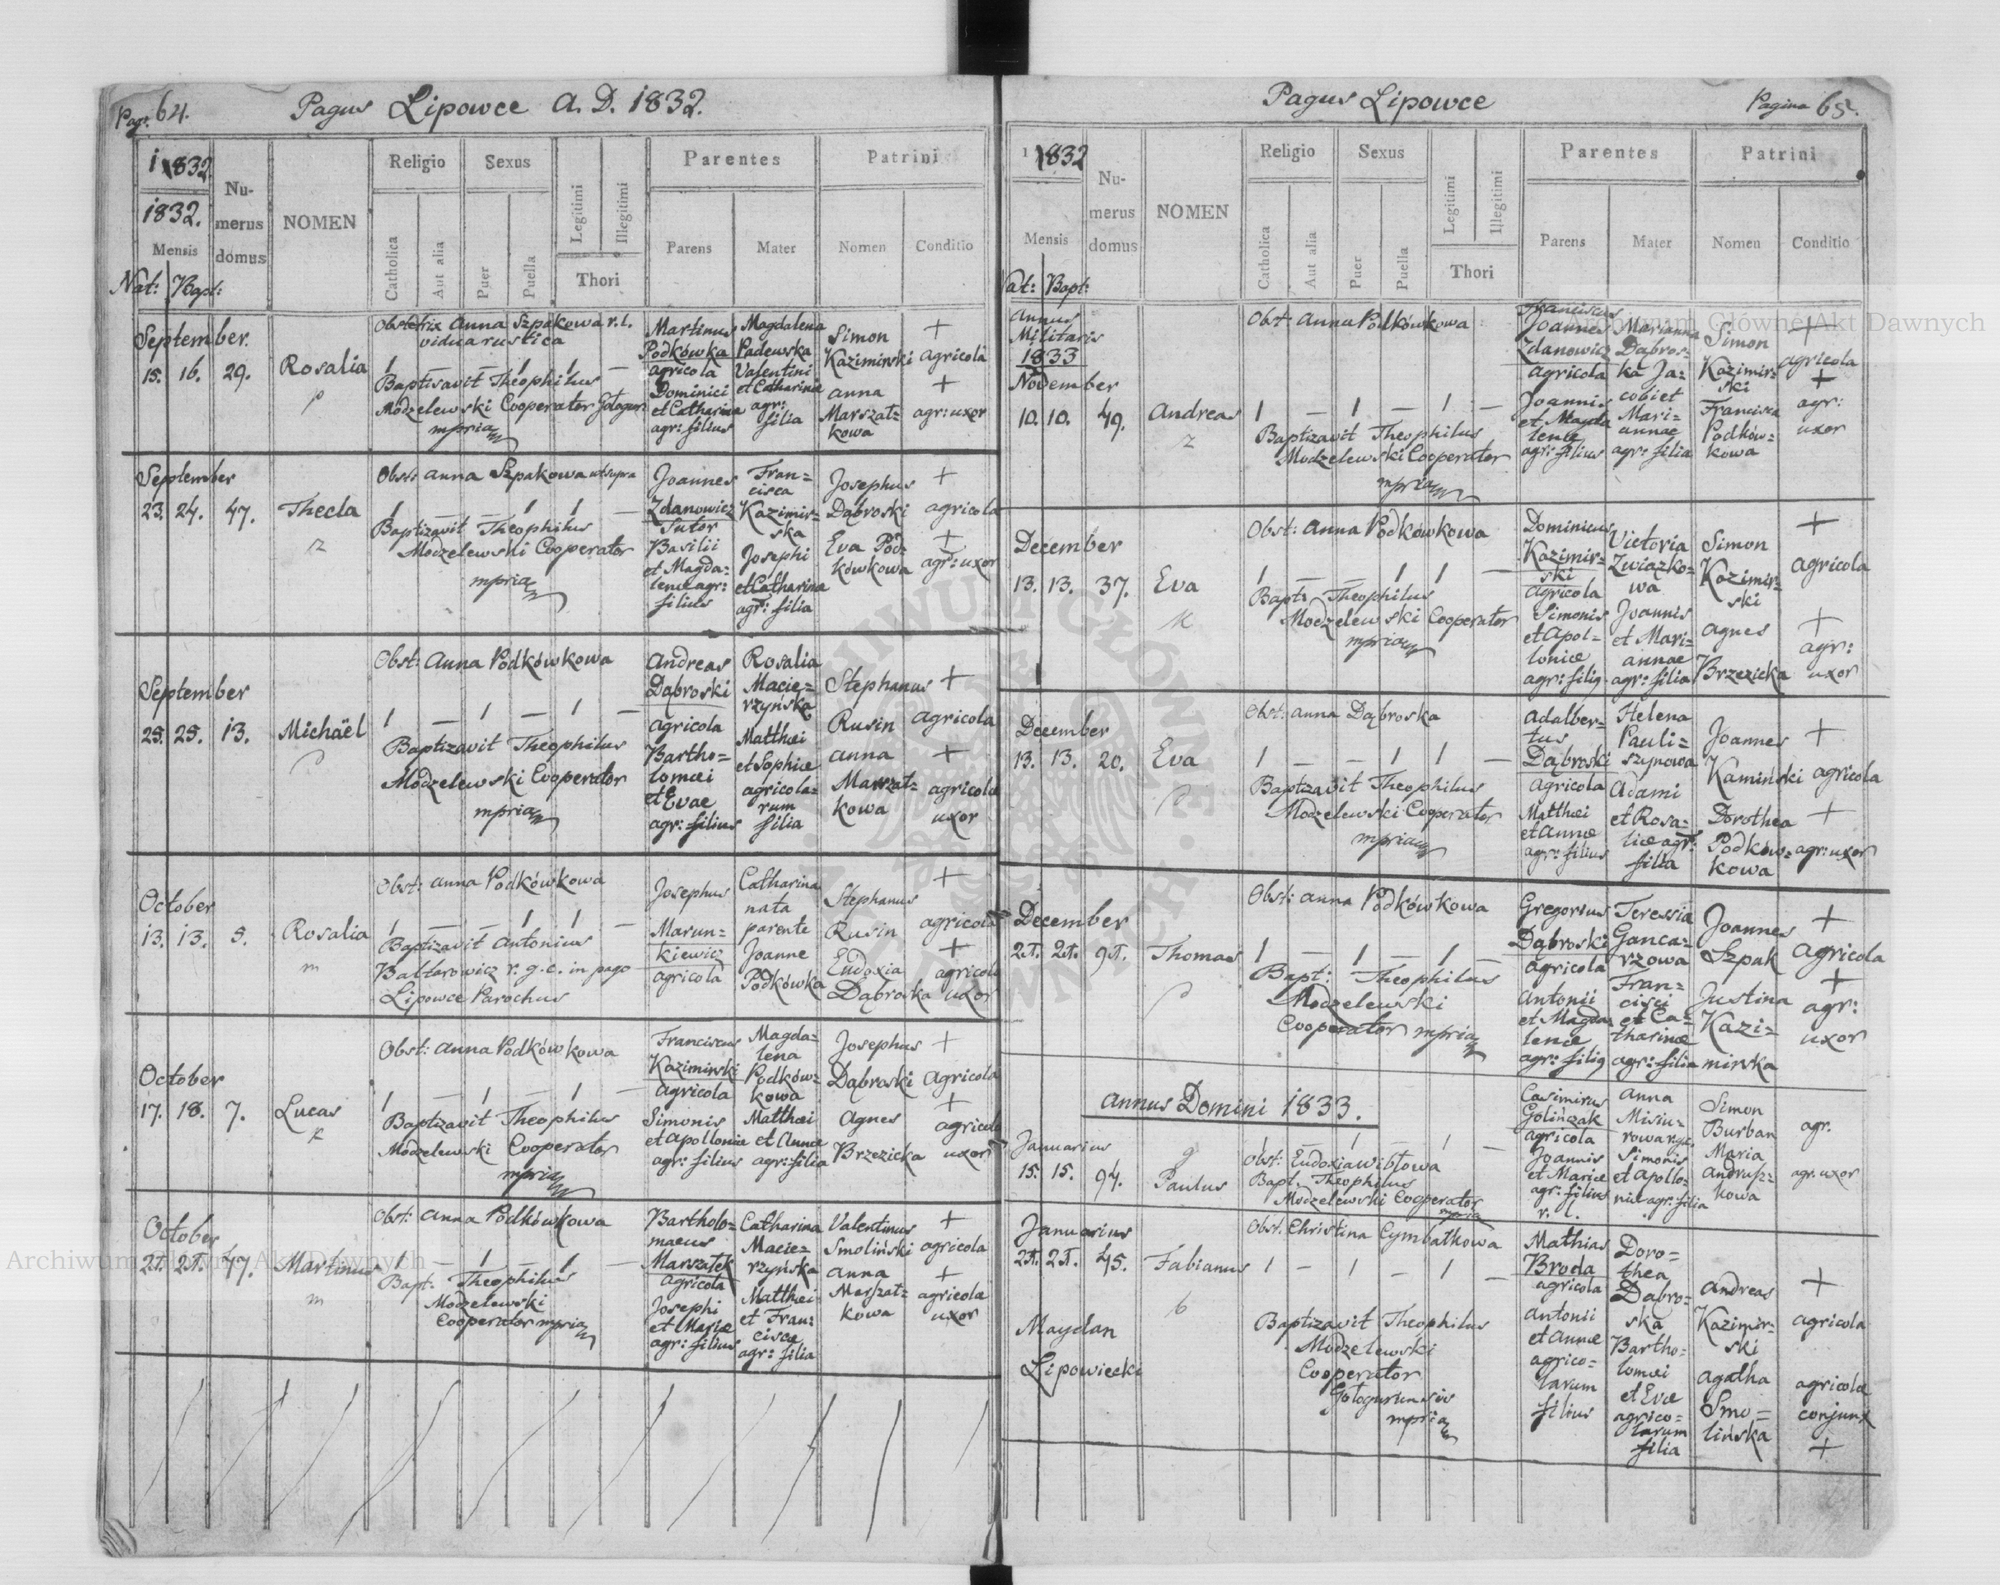 Pag. 64.
Pagus Lipowce A. D. 1832.
1832
1832.
Mensis
Nat: Bapt:
Numerus domus
NOMEN
Religio
Catholica
Aut alia
Sexus
Puer
Puella
Legitimi
Illegitimi
Thori
Parentes
Parens
Mater
Patrini
Nomen
Conditio
September
15. 16. 29.
Rosalia
Obstetrix Anna Szpakowa r. l.
vidua rustica
1 — — 1 1 —
Baptisavit Theophilus
Modzelewski Cooperator
mpria
Martinus
Podkówka
agricola
Dominici
et Catharinae
agr: filius
Magdalena
Padewska
Valentini
et Catharinae
agr:
filia
Simon
Kazimirski
Anna
Marszał=
kowa
+
agricola
+
agr: uxor
September
23. 24. 47.
Thecla
Obst: Anna Szpakowa ut supra
1 — — 1 1 —
Baptizavit Theophilus
Modzelewski Cooperator
mpria
Joannes
Zdanowicz
Sutor
Basilii
et Magda=
lenae agr:
filius
Fran=
cisca
Kazimir=
ska
Josephi
et Catharina
agr: filia
Josephus
Dąbroski
Eva Pod=
kówkowa
+
agricola
+
agr: uxor
September
25. 25. 13.
Michaël
Obst: Anna Podkówkowa
1 — 1 — 1 —
Baptizavit Theophilus
Modzelewski Cooperator
mpria
Andreas
Dąbroski
agricola
Bartho=
lomæi
et Evae
agr: filius
Rosalia
Macie=
rzyńska
Matthæi
et Sophiæ
agricola=
rum
filia
Stephanus
Rusin
Anna
Marszał=
kowa
+
agricola
+
agricolæ
uxor
October
13. 13. 5.
Rosalia
m
Obst: Anna Podkówkowa
1 — — 1 1 —
Baptizavit Antonius
Baltarowicz r. g. c. in pago
Lipowce Parochus
Josephus
Marun=
kiewicz
agricola
Catharina
nata
parente
Joanne
Podkówka
Stephanus
Rusin
Eudoxia
Dąbroska
+
agricola
+
agricolæ
uxor
October
17. 18. 7.
Lucas
Obst: Anna Podkówkowa
1 — 1 — 1 —
Baptizavit Theophilus
Modzelewski Cooperator
mpria
Franciscus
Kazimirski
agricola
Simonis
et Apolloniæ
agr: filius
Magda=
lena
Podków=
kowa
Matthæi
et Annæ
agr: filia
Josephus
Dąbroski
Agnes
Brzezicka
+
Agricola
+
agricolæ
uxor
October
21. 21. 47.
Martinus
m
Obst: Anna Podkówkowa
1 — 1 — 1 —
Bapt: Theophilus
Modzelewski
Cooperator mpria
Bartholo=
maeus
Marszałek
agricola
Josephi
et Mariæ
agr: filius
Catharina
Macie=
rzyńska
Matthæi
et Fran=
ciscæ
agr: filia
Valentinus
Smoliński
Anna
Marszał=
kowa
+
agricola
+
agricolæ
uxor
Pagus Lipowce
Pagina 65.
1832
Mensis
Nat: Bapt:
Numerus domus
NOMEN
Religio
Catholica
Aut alia
Sexus
Puer
Puella
Legitimi
Illegitimi
Thori
Parentes
Parens
Mater
Patrini
Nomen
Conditio
Annus
Militaris
1833
November
10. 10. 49.
Andreas
Obst: Anna Podkówkowa
1 — 1 — 1 —
Baptizavit Theophilus
Modzelewski Cooperator
mpria
Franciscus
Joannes
Zdanowicz
agricola
Joannis
et Magda
lenæ
agr: filius
Marianna
Dąbros=
ka Ja=
cobi et
Mari=
annae
agr: filia
Simon
Kazimir=
ski
Francisca
Podków=
kowa
+
agricola
+
agr:
uxor
December
13. 13. 37.
Eva
Obst: Anna Podkówkowa
1 — — 1 1 —
Bapt: Theophilus
Modzelewski Cooperator
mpria
Dominicus
Kazimir=
ski
agricola
Simonis
et Apol=
loniæ
agr: filig
Victoria
Związko=
wa
Joannis
et Mari=
annae
agr: filia
Simon
Kazimir=
ski
Agnes
Brzezicka
+
agricola
+
agr:
uxor
December
13. 13. 20.
Eva
Obst: Anna Dąbroska
1 — — 1 1 —
Baptizavit Theophilus
Modzelewski Cooperator
mpria
Adalber=
tus
Dąbroski
agricola
Matthæi
et Annæ
agr: filius
Helena
Pauli=
szynowa
Adami
et Rosa=
liæ agr:
filia
Joannes
Kamiński
Dorothea
Podków=
kowa
+
agricola
+
agr: uxor
December
21. 21. 91.
Thomas
Obst: Anna Podkówkowa
1 — 1 — 1 —
Bapt: Theophilus
Modzelewski
Cooperator mpria
Gregorius
Dąbroski
agricola
Antonii
et Magda
lenæ
agr: filig
Teressia
Ganca=
rzowa
Fran=
cisci
et Ca=
tharinæ
agr: filia
Joannes
Szpak
Justina
Kazi=
mirska
+
agricola
+
agr:
uxor
Annus Domini 1833.
Januarius
15. 15. 94.
Paulus
Obst: Eudoxia Wibłowa
Bapt. Theophilus
Modzelewski Cooperator
mpria
Casimirus
Golińczak
agricola
Joannis
et Mariæ
agr: filius
r. l.
Anna
Misiu=
rowa
Simonis
et Apollo=
niæ agr: filia
Simon
Burban
Maria
kowa
agr.
agr. uxor
Januarius
21. 21. 45.
Fabianus
Maydan
Lipowiecki
Obst. Christina Cymbałkowa
1 — 1 — 1 —
Baptizavit Theophilus
Modzelewski
Cooperator
mpria
Mathias
Broda
agricola
Antonii
et Annæ
agrico=
larum
filius
Doro=
thea
Dąbro=
ska
Bartho=
lomæi
et Evæ
agrico=
larum
filia
Andreas
Kazimir=
ski
Agatha
Smo=
lińska
+
agricola
agricolæ
conjunx
+
Archiwum Główne Akt Dawnych
Archiwum Główne Akt Dawnych